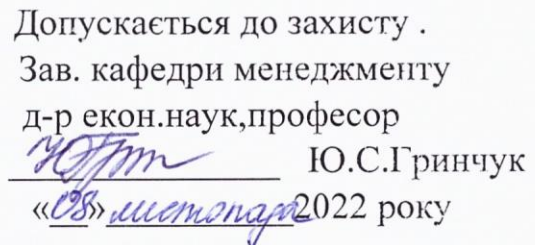 Допускається до захисту .
Зав. кафедри менеджменту
д-р екон.наук,професор
Ю.С.Гринчук
«08» листопада 2022 року